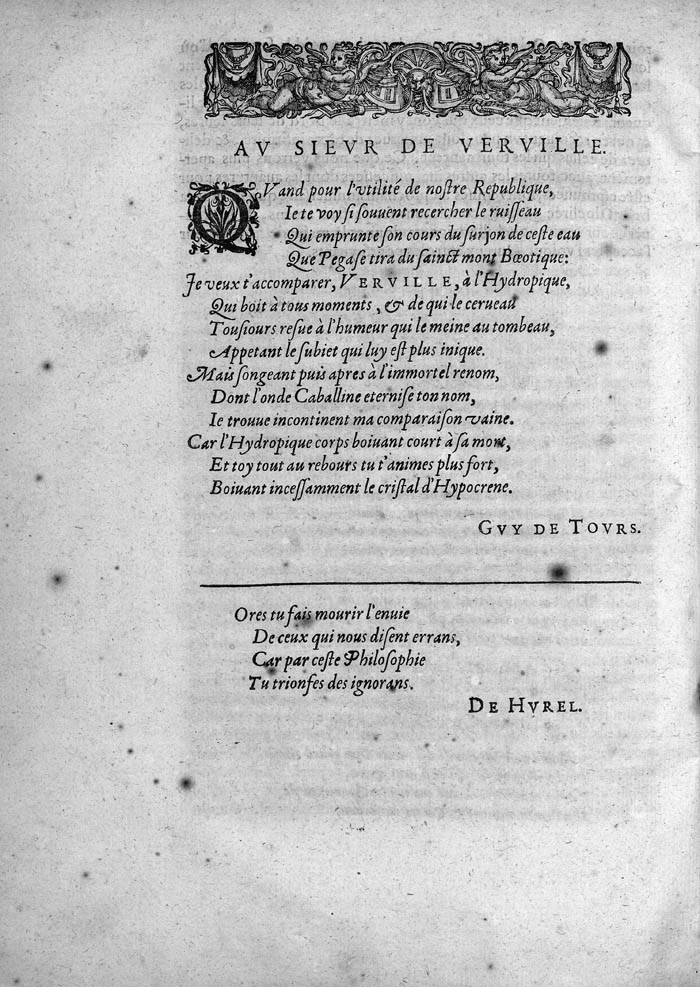 AV SIEVR DE VERVILLE.
QVand pour l'vtilité de nostre Republique,
Ie te voy si souuent recercher le ruisseau
Qui emprunte son cours du surjon de ceste eau
Que Pegase tira du sainct mont Bœotique:
Je veux t'accomparer, VERVILLE, à l'Hydropique,
Qui boit à tous moments, & de qui le cerueau
Tousiours resue à l'humeur qui le meine au tombeau,
Appetant le subiet qui luy est plus inique.
Mais songeant puis apres à l'immortel renom,
Dont l'onde Caballine eternise ton nom,
Ie trouue incontinent ma comparaison vaine.
Car l'Hydropique corps boiuant court à sa mort,
Et toy tout au rebours tu t'animes plus fort,
Boiuant incessamment le cristal d'Hypocrene.
GVY DE TOVRS.
Ores tu fais mourir l'enuie
De ceux qui nous disent errans,
Car par ceste Philosophie
Tu trionfes des ignorans.
DE HVREL.